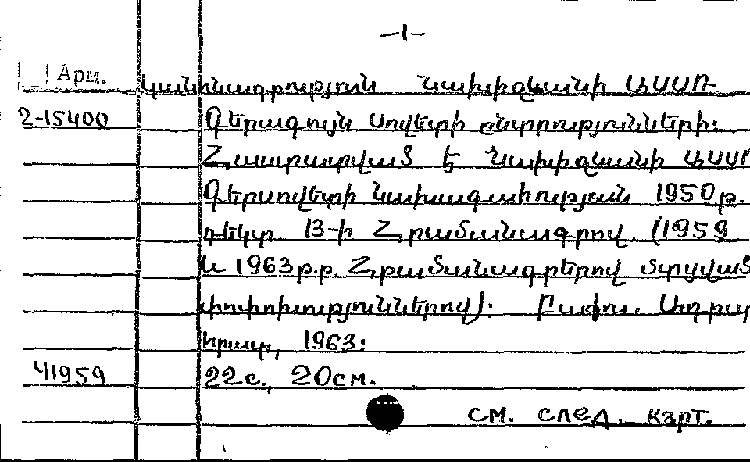 -1-
Арм.
Կանոնադրություն Նախիջևանի ԱՍՍՌ
2-15400 Գերագույն Սովետի ընտրությունների:
Հաստատված է Նախիջևանի ԱՍՍՌ
Գերսովետի նախագահության 1950 թ.
դեկտ. 13-ի Հրամանագրով (1959
և 1963 թ.թ. Հրամանագրերով մտցված
փոփոխություններով): Բաքու. Ադրպետ
հրատ, 1963:
41959 22с., 20см.
см. след. карт.